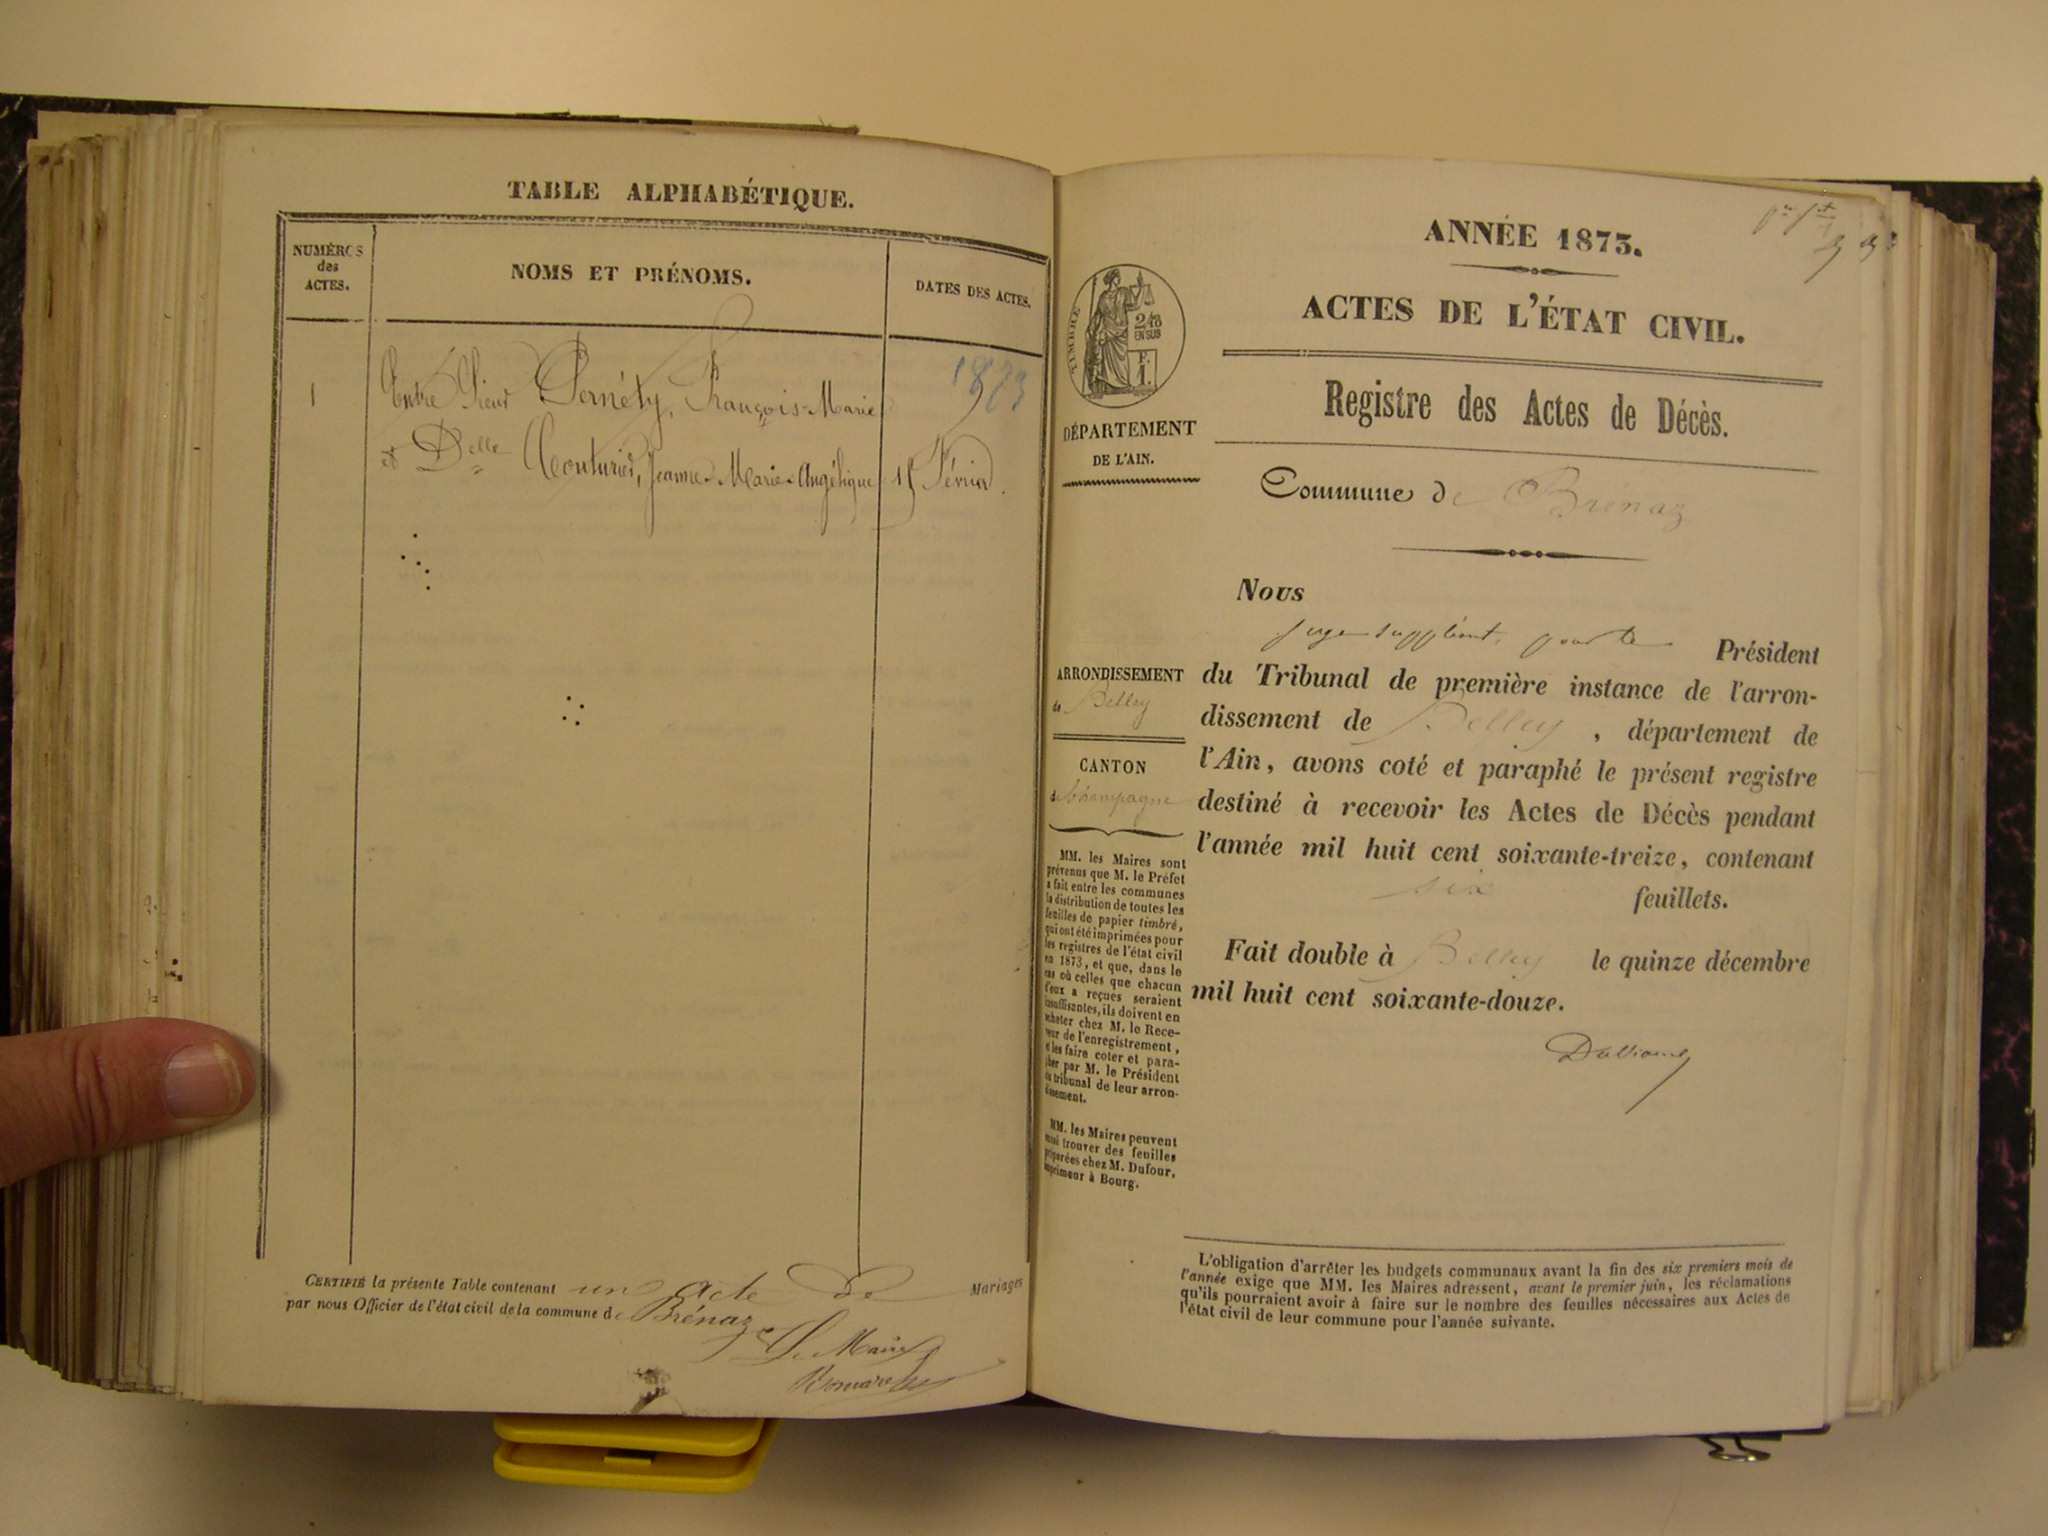 TABLE ALPHABÉTIQUE.
NUMÉROS
des
ACTES.
NOMS ET PRÉNOMS.
DATES DES ACTES.
1873
1 Entre Sieur Pernéty, François-Marie
et Delle Couturier, Jeanne-Marie-Angélique 15 Février.
CERTIFIÉ la présente Table contenant un acte de Mariages
par nous Officier de l'état civil de la commune de Brénaz
Le Maire
ANNÉE 1873.
ACTES DE L'ÉTAT CIVIL.
Registre des Actes de Décès.
TIMBRE
2/10
EN SUS
F.
1.
DÉPARTEMENT
DE L'AIN.
Commune de Brénaz
ARRONDISSEMENT
de Belley
CANTON
de Champagne
MM. les Maires sont
prévenus que M. le Préfet
a fait entre les communes
la distribution de toutes les
feuilles de papier timbré,
qui ont été imprimées pour
les registres de l'état civil
en 1873, et que, dans le
cas où celles que chacun
d'eux a reçues seraient
insuffisantes, ils doivent en
acheter chez M. le Rece-
veur de l'enregistrement,
et les faire coter et para-
pher par M. le Président
du tribunal de leur arron-
dissement.
MM. les Maires peuvent
aussi trouver des feuilles
préparées chez M. Dufour,
imprimeur à Bourg.
Nous
juge suppléant, pour le Président
du Tribunal de première instance de l'arron-
dissement de Belley, département de
l'Ain, avons coté et paraphé le présent registre
destiné à recevoir les Actes de Décès pendant
l'année mil huit cent soixante-treize, contenant
six feuillets.
Fait double à Belley le quinze décembre
mil huit cent soixante-douze.
L'obligation d'arrêter les budgets communaux avant la fin des six premiers mois de
l'année exige que MM. les Maires adressent, avant le premier juin, les réclamations
qu'ils pourraient avoir à faire sur le nombre des feuilles nécessaires aux Actes de
l'état civil de leur commune pour l'année suivante.